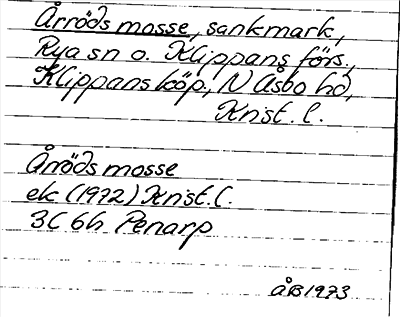 Årröds mosse, sankmark,
Rya sn o. Klippans förs.,
Klippans köp., N Åsbo hd,
Krist. l.
Årröds mosse
ek (1972) Krist. l.
3C 6h Penarp
ÅB 1973